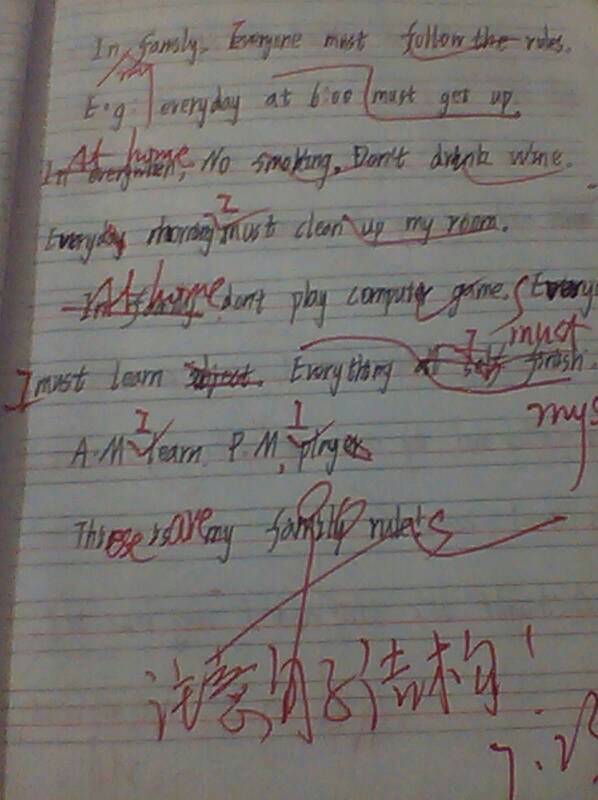 In family, Everyone must follow the rules.
E.g everyday at 6:00 must get up.
At home
In everywhen, No smoking, Don't drink wine.
I
Everyday morning must clean up my room.
At home
In don't play computer game. Every
I must
I must learn subject. Everything at self finish.
mys
I I
A.M learn P.M, play
These are my family rules
注意句子结构!
7.